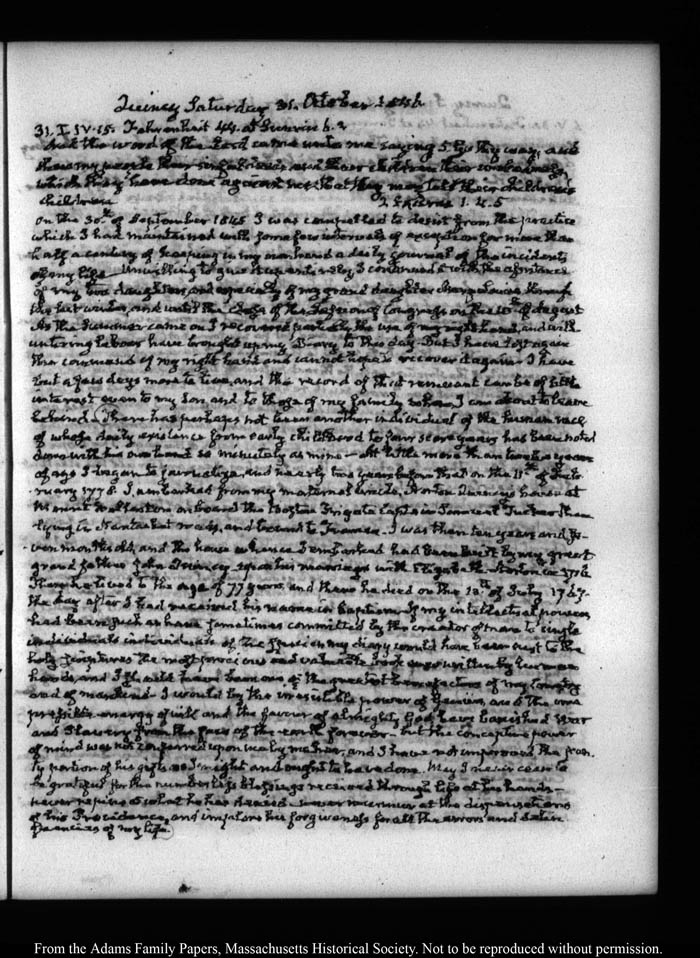 Quincy Saturday 31. October 1846
31. I. IV:15. Fahrenheit 44. at Sunrise 6.2
And the word of the Lord came unto me saying 5 Go thy way, and
shew my people their sinful deeds, and their children their wickedness,
which they have done against me; that they may tell their childrens
children 2 Esdras 1. 4. 5
On the 30th of September 1845 I was compelled to desist from the practice
which I had maintained with some few intervals of exception for more than
half a century of keeping in my own hand a daily journal of the incidents
of my life. Unwilling to give it up entirely, I continued it with the assistance
of my daughters, and especially of my grand daughter Mary Louisa through
the last winter, and until the close of the Session of Congress on the 10th of August
As the Summer came on I recovered partially the use of my right hand, and with
untiring labour have brought up my Diary to this day. But I have lost again
the command of my right hand and cannot hope to recover it again. I have
but a few days more to live, and the record of that remnant can be of little
interest even to my son and to those of my family whom I am about to leave
behind. There has perhaps not been another individual of the human race
of whose daily existence from early childhood to four score years has been noted
down with his own hand so minutely as mine — At little more than twelve years
of age I began to journalize, and nearly two years before that on the 11th of Feb
ruary 1778. I embarked from my maternal uncle, Norton Quincy's house at
Mount Wollaston on board the Boston Frigate Captain Samuel Tucker then
lying in Nantasket roads, and bound to France. I was then ten years and se-
ven months old, and the house whence I embarked had been built by my great
grandfather John Quincy upon his marriage with Elizabeth Norton in 1716
There he lived to the age of 77 years, and there he died on the 13th of July 1767.
the day after I had received his name in baptism. If my intellectual powers
had been such as have sometimes committed by the creator of man to single
individuals of the species my diary would have been next to the
holy Scriptures the most precious and valuable book ever written by human
hands, and I should have been one of the greatest benefactors of my Country
and of mankind. I would by the irresistible power of Genius, and the
energy of will and the favour of almighty God, have banished War
and Slavery from the face of the earth forever — but the conceptive power
of mind was not conferred upon me by my maker, and I have not improved the scan
ty portion of his gifts as I might and ought to have done. May I never cease to
be grateful for the numberless blessings received through life at his hands —
never repine at what he has denied — never murmur at the dispensations
of his Providence, and implore his forgiveness for all the errors and delin
quencies of my life.
From the Adams Family Papers, Massachusetts Historical Society. Not to be reproduced without permission.